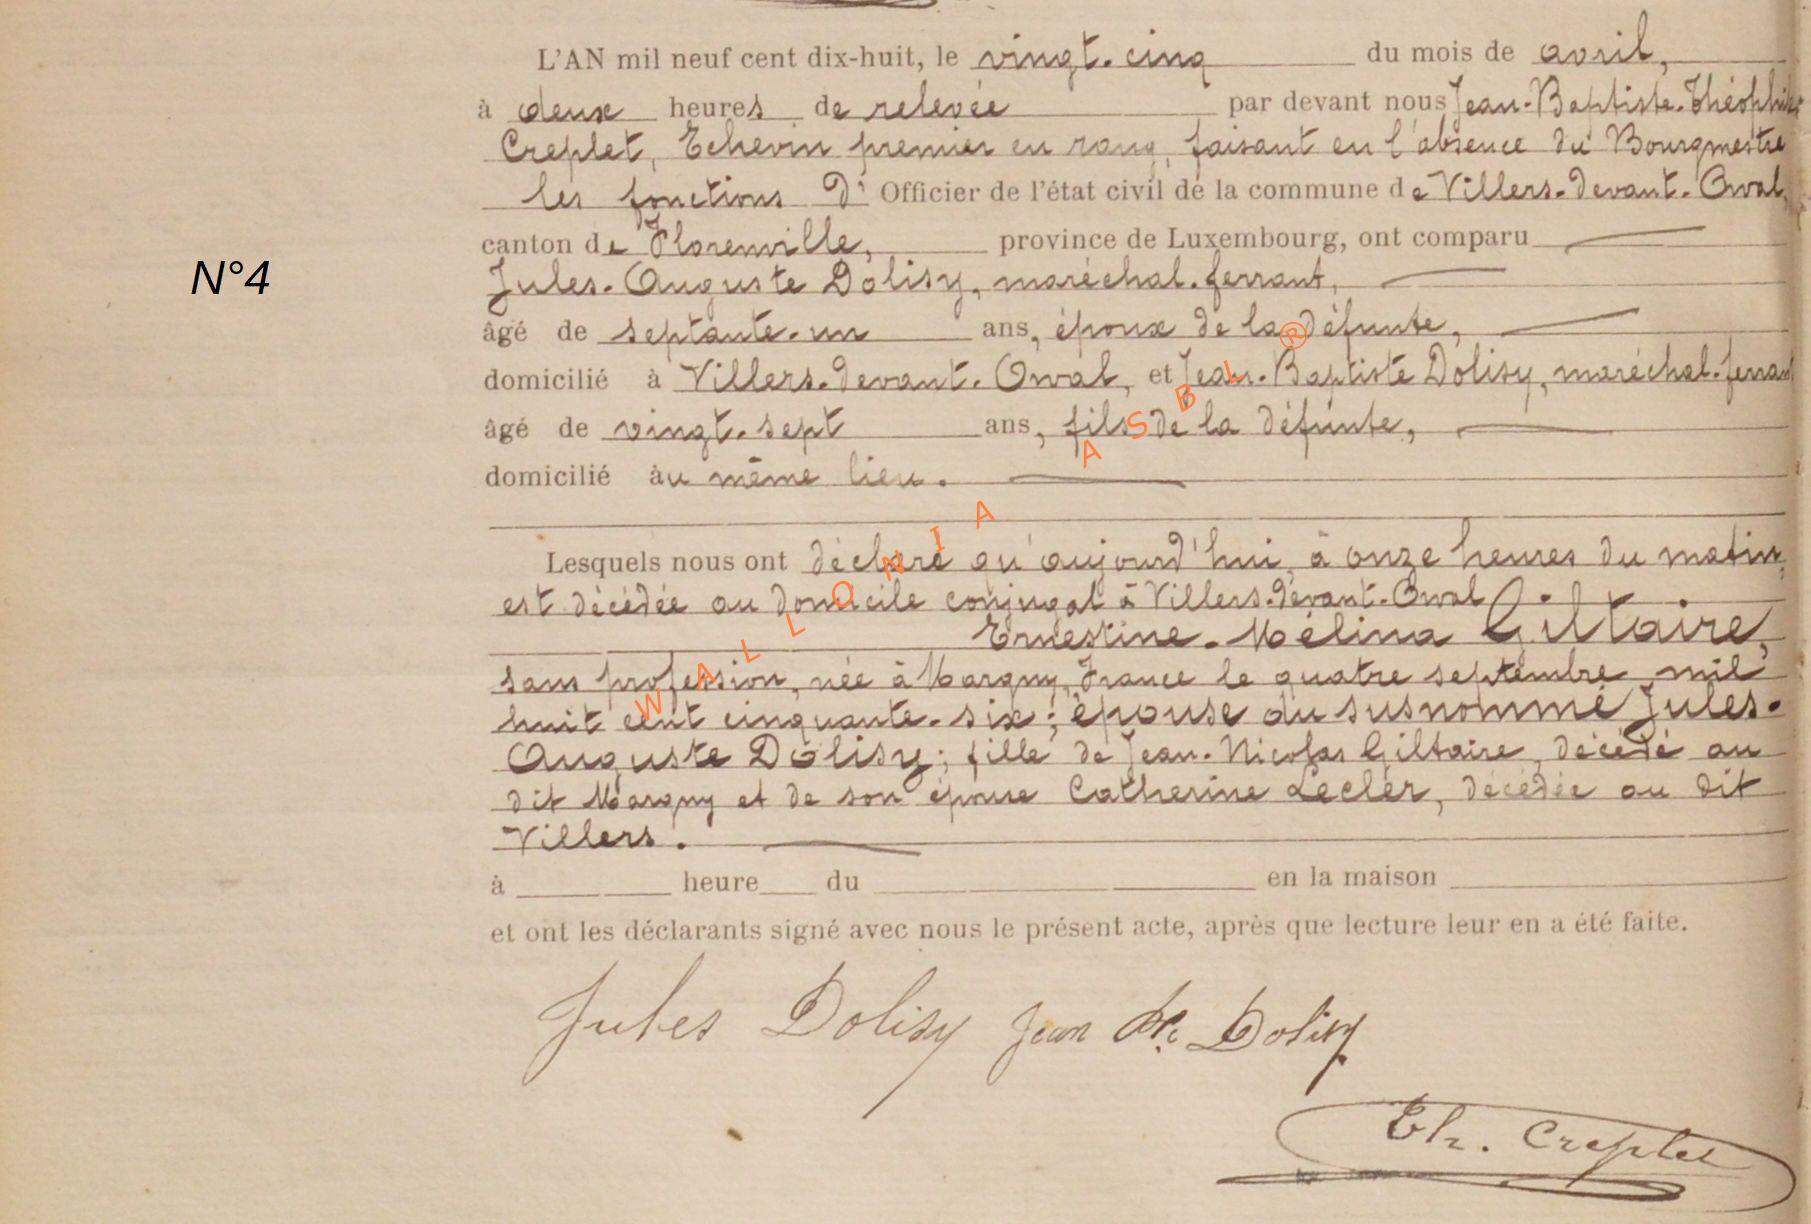 L'AN mil neuf cent dix-huit, le vingt-cinq du mois de avril,
à deux heures de relevée par devant nous Jean-Baptiste-Théophile
Creplet, Echevin premier en rang, faisant en l'absence du Bourgmestre
les fonctions d' Officier de l'état civil de la commune de Villers-devant-Orval,
canton de Florenville, province de Luxembourg, ont comparu
N°4
Jules-Auguste Dolisy, maréchal-ferrant,
âgé de septante-un ans, époux de la défunte,
domicilié à Villers-devant-Orval, et Jean-Baptiste Dolisy, maréchal-ferrant
âgé de vingt-sept ans, fils de la défunte,
domicilié au même lieu.
Lesquels nous ont déclaré qu'aujourd'hui, à onze heures du matin,
est décédée au domicile conjugal à Villers-devant-Orval
Ernestine-Mélina Giltaire,
sans profession, née à Margny, France le quatre septembre mil
huit cent cinquante-six; épouse du susnommé Jules-
Auguste Dolisy; fille de Jean-Nicolas Giltaire, décédé au
dit Margny et de son épouse Catherine Leclér, décédée au dit
Villers.
à heure du en la maison
et ont les déclarants signé avec nous le présent acte, après que lecture leur en a été faite.
Jules Dolisy Jean Bte Dolisy
Th. Creplet
WALLONIA ASBL ®